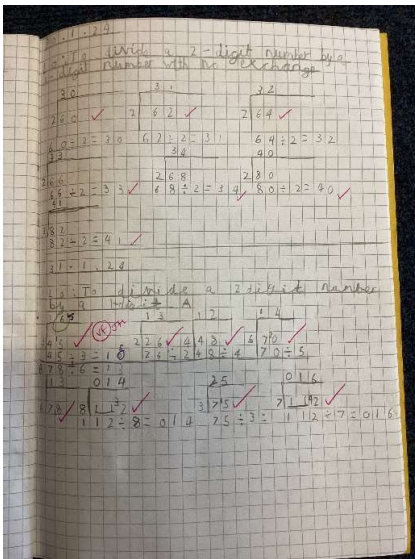 .1.24
To divid a 2-digit number by a
digit number with no exchange
30 31 32
2 60 2 62 2 64
60÷2=30 62÷2=31 64÷2=32
33 34 40
2 66 2 68 2 80
66÷2=33 68÷2=34 80÷2=40
41
2 82
82÷2=41
31.1.24
To divide a 2 digit number
by a
13 12 14
3 45 2 26 4 48 5 70
45÷3=1 26÷2 48÷4 70÷5
678÷6=13
13 014 25 016
6 78 8 112 3 75 7 112
112÷8=014 75÷3= 112÷7=016